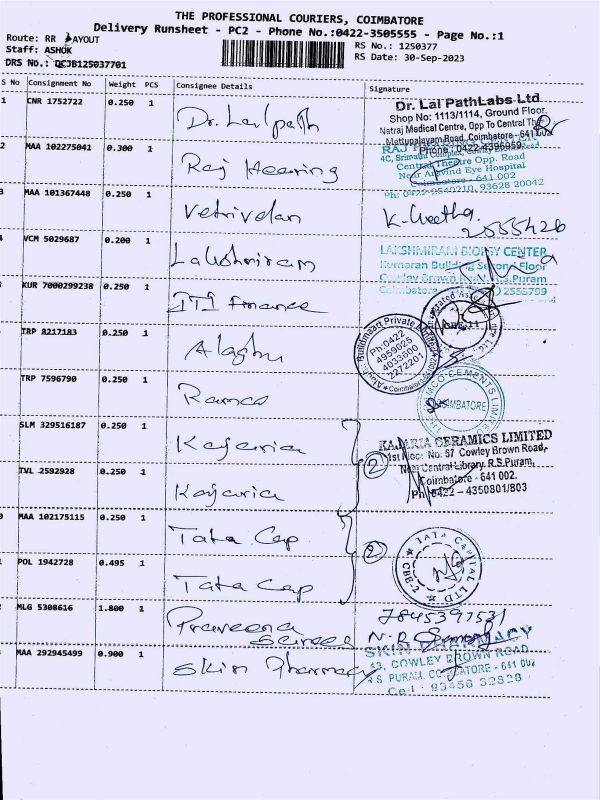 THE PROFESSIONAL COURIERS, COIMBATORE
Delivery Runsheet - PC2 - Phone No.:0422-3505555 - Page No.:1
Route: RR LAYOUT
Staff: ASHOK
DRS No.: DCJB125037701
RS No.: 1250377
RS Date: 30-Sep-2023
S No Consignment No Weight PCS Consignee Details Signature
1 CNR 1752722 0.250 1 Dr. Lalpath
Dr. Lal PathLabs Ltd
Shop No: 1113/1114, Ground Floor,
Natraj Medical Centre, Opp To Central The
Mettupalayam Road, Coimbatore - 641 002
Phone: 0422-4396959
2 MAA 102275041 0.300 1 Raj Hearing
Central Theatre Opp. Road
Near Aravind Eye Hospital
Coimbatore - 641 002
Ph: 0422-9540210, 93628 20042
3 MAA 101367448 0.250 1 Vetrivelan
K. Geetha
2555426
4 VCM 5029687 0.200 1 Lakshmiram
LAKSHMIRAM BIOPSY CENTER
Kumaran Building Second Floor
Cowley Brown Road, R.S.Puram
Coimbatore 2555759
KUR 7000299238 0.250 1 ITI finance
TRP 8217183 0.250 1 Alaghu
Buildmaart Private Limited
Ph:0422
4959025
4033600
2272201
TRP 7596790 0.250 1 Ramco
RAMCO CEMENTS LIMITED
COIMBATORE
SLM 329516187 0.250 1 Kajaria
TVL 2592928 0.250 1 Kajaria
2
KAJARIA CERAMICS LIMITED
1st Floor No: 67 Cowley Brown Road,
Near Central Library, R.S.Puram,
Coimbatore - 641 002.
Ph: 0422 - 4350801/803
MAA 102175115 0.250 1 Tata Cap
POL 1942728 0.495 1 Tata Cap
2
TATA CAPITAL LTD
CBE-2
MLG 5308616 1.800 1 Praveena
7845397531
MAA 292945499 0.900 1 Skin Pharmacy
SKIN PHARMACY
43, COWLEY BROWN ROAD
R.S. PURAM, COIMBATORE - 641 002
Cell : 93456 32828